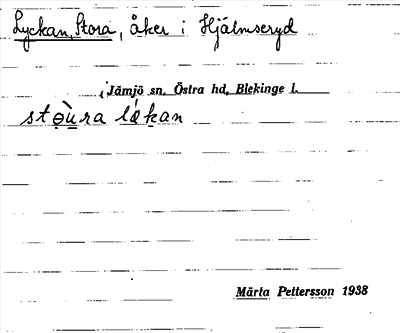 Lyckan, Stora, åker i Hjälmseryd
i Jämjö sn, Östra hd, Blekinge l.
stọ̀u̲ra lákan
Märta Pettersson 1938